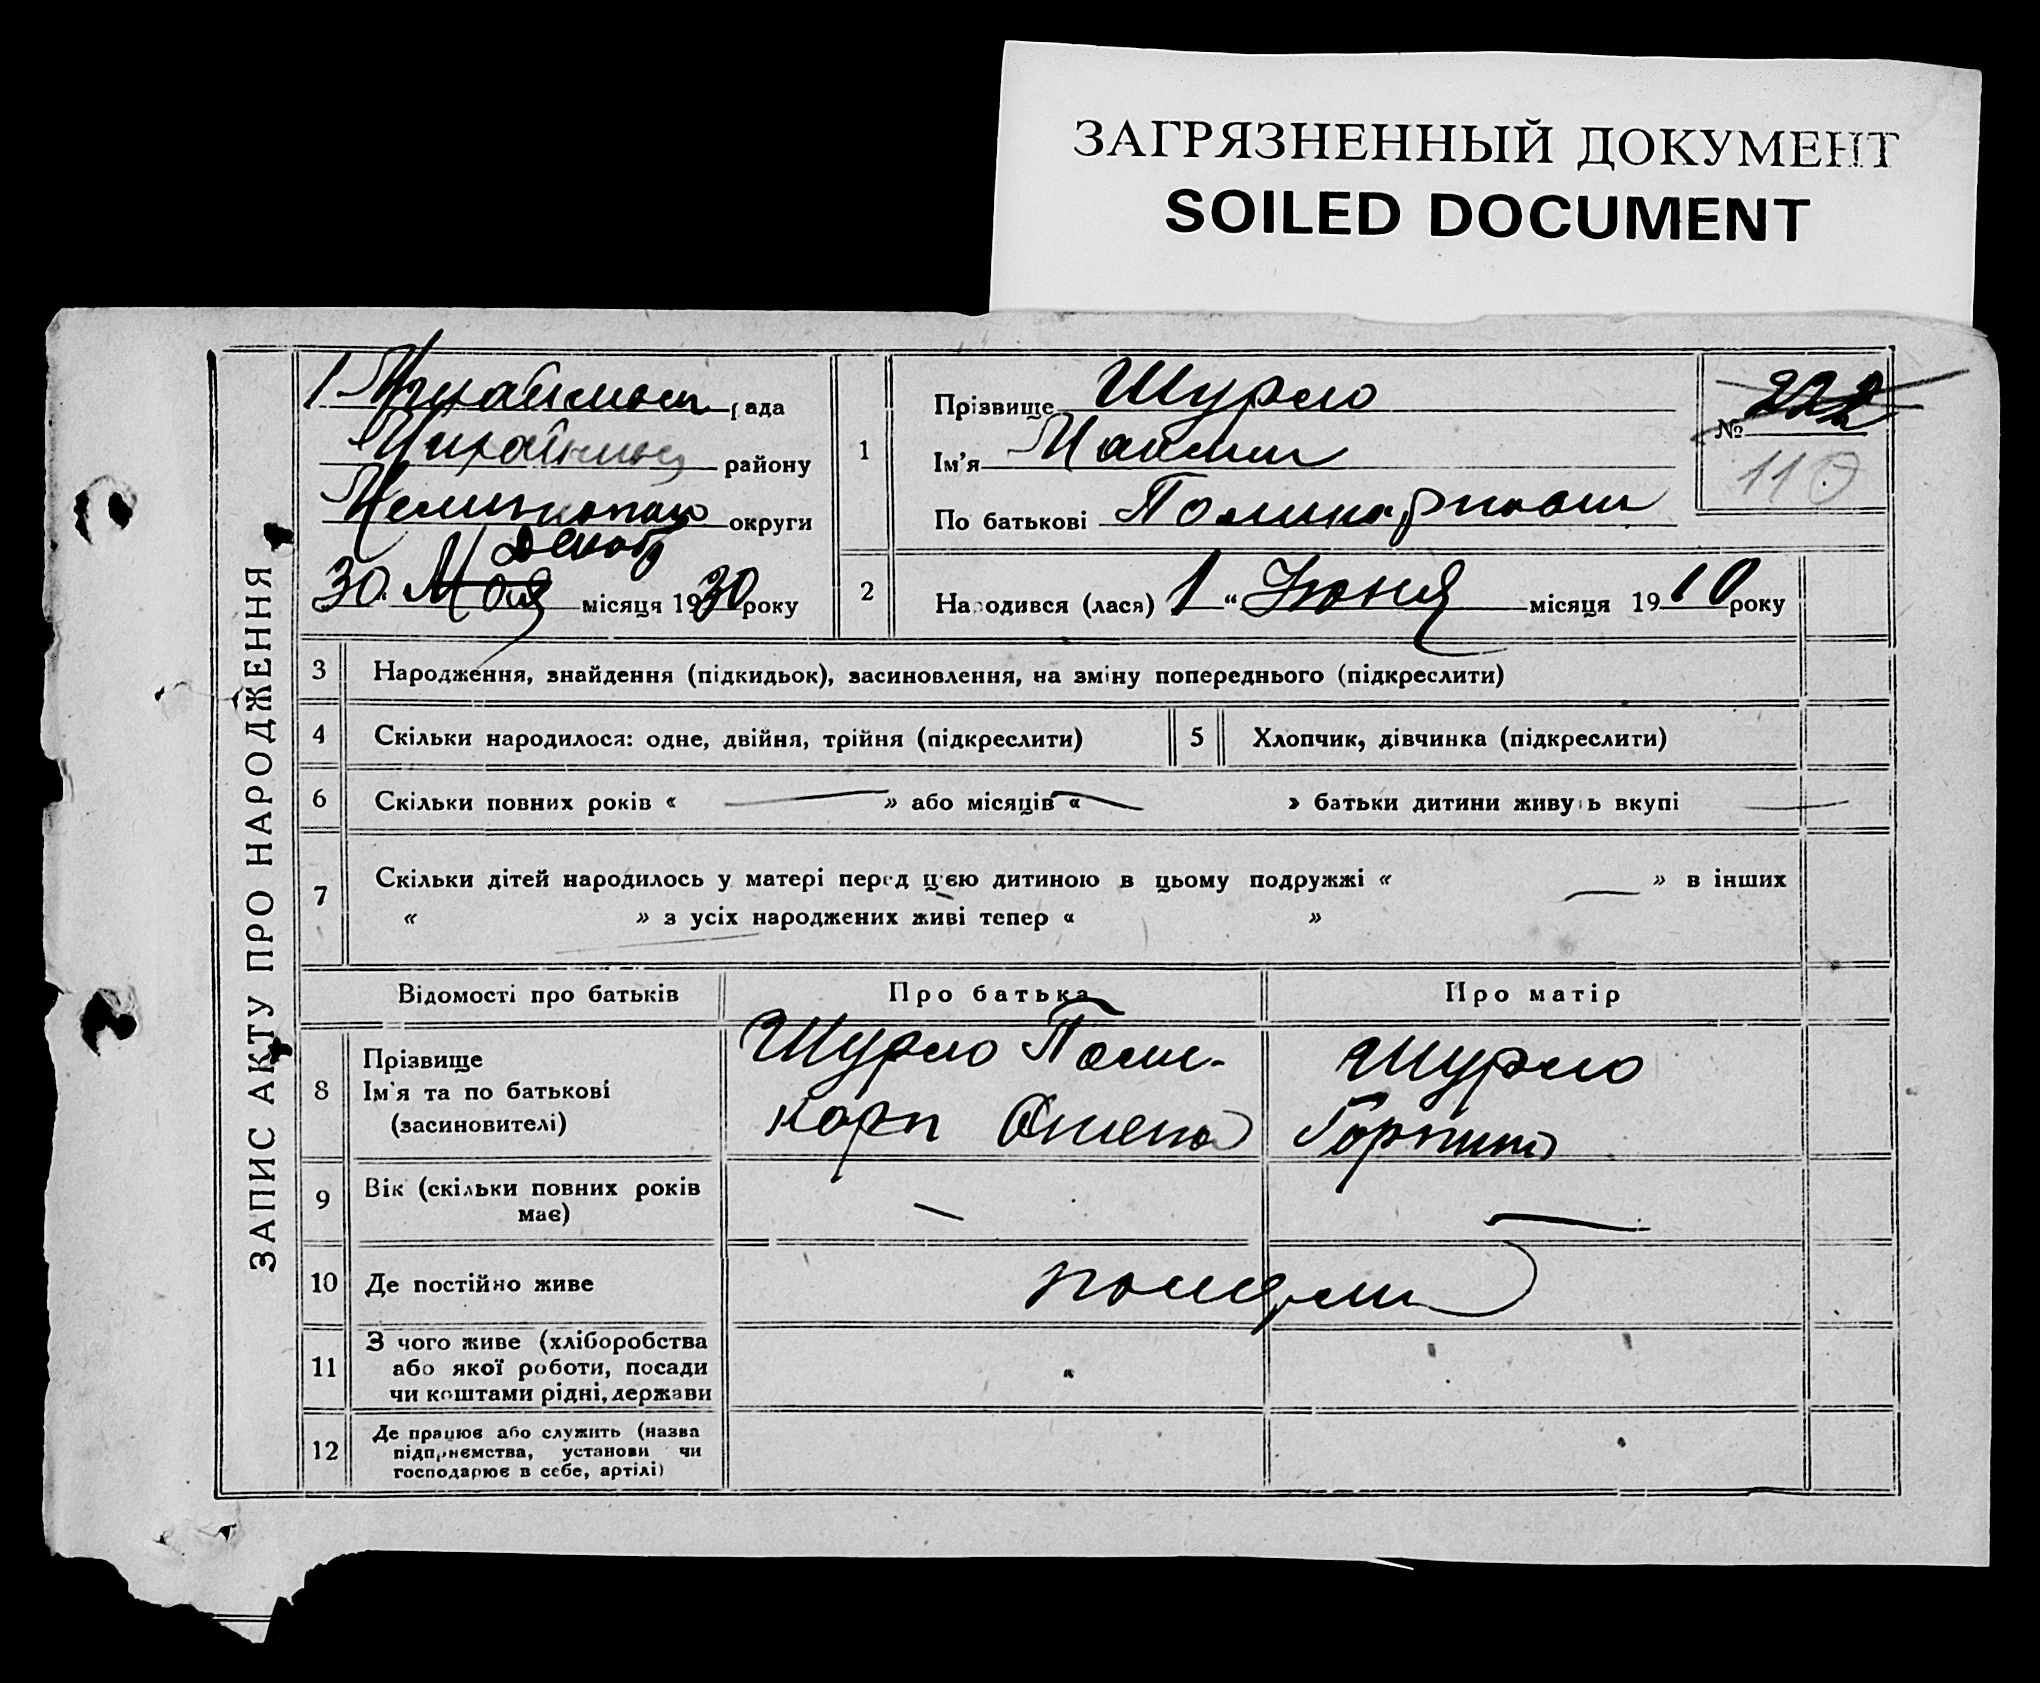 ЗАГРЯЗНЕННЫЙ ДОКУМЕНТ
SOILED DOCUMENT
ЗАПИС АКТУ ПРО НАРОДЖЕННЯ
рада
району
округи
Декаб
30 Мая місяця 1930 року
1
Прізвище Шурло
Ім'я
По батькові
№ 222
110
2
Народився (лася) 1 “ Июня місяця 1910 року
3 Народження, знайдення (підкидьок), засиновлення, на зміну попереднього (підкреслити)
4 Скільки народилося: одне, двійня, трійня (підкреслити)
5 Хлопчик, дівчинка (підкреслити)
6 Скільки повних років « » або місяців « » батьки дитини живуть вкупі
7 Скільки дітей народилось у матері перед цією дитиною в цьому подружжі « » в інших
« » з усіх народжених живі тепер « »
Відомості про батьків
Про батька
Про матір
8
Прізвище
Ім'я та по батькові
(засиновителі)
Шурло Поли-
карп
Шурло
Горпина
9 Вік (скільки повних років
має)
10 Де постійно живе
померли
11
З чого живе (хліборобства
або якої роботи, посади
чи коштами рідні, держави
12
Де працює або служить (назва
підприємства, установи чи
господарює в себе, артілі)